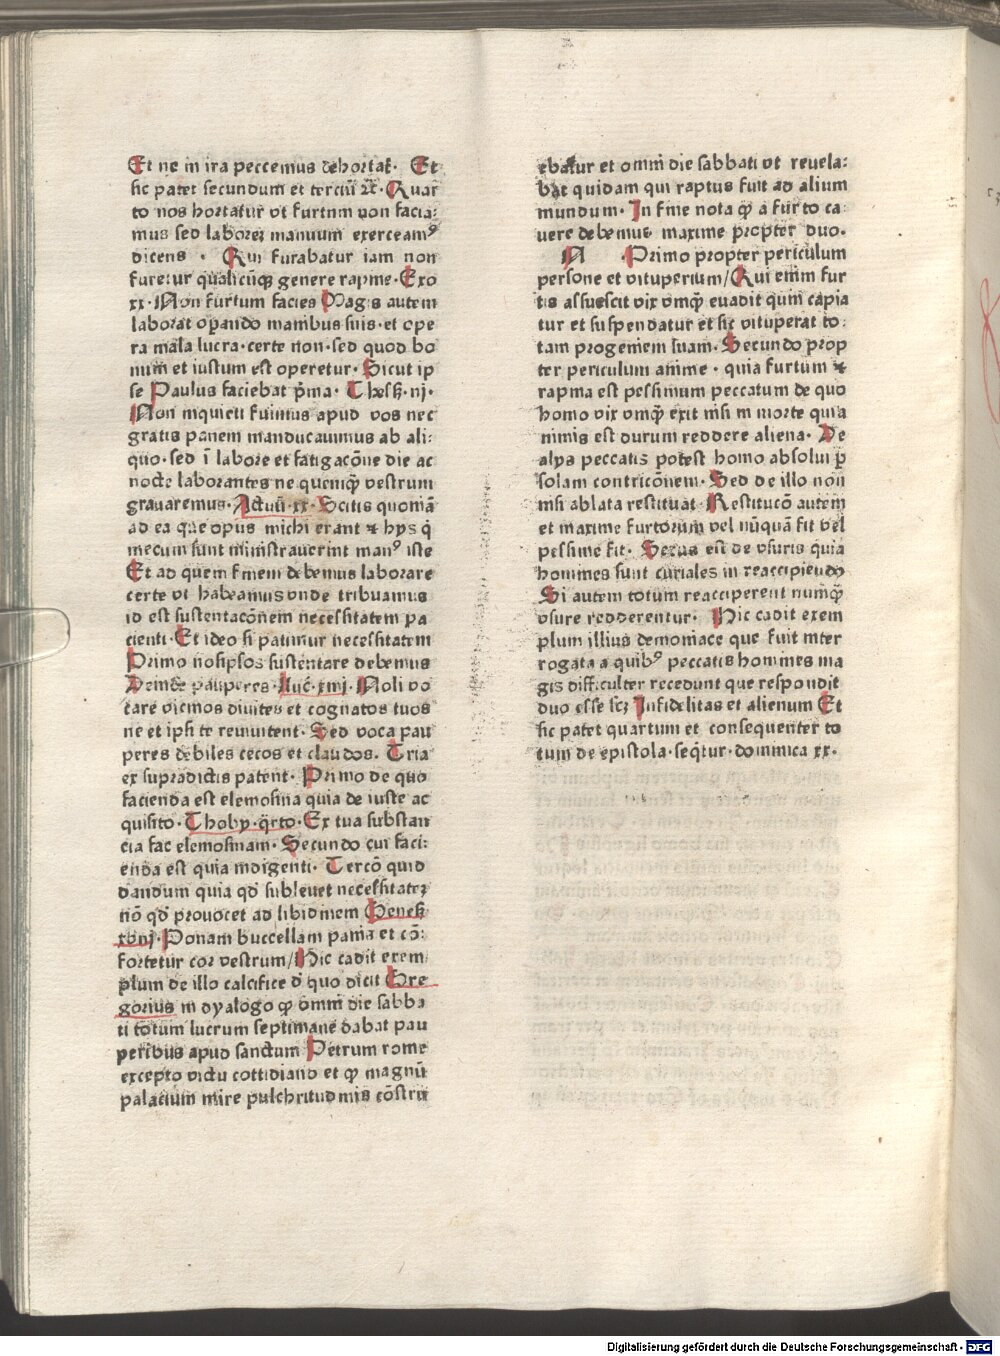 Et ne in ira peccemus dehortat᷒. Et
sic patet secundum et terciū ⁊c̄. Quar
to nos hortatur vt furtum non facia⸗
mus sed laborez manuum exerceamꝰ
dicens . Qui furabatur iam non
furetur qualicūqꝫ genere rapine. Exo
xx. Non furtum facies Magis autem
laborat oꝑando manibus suis. et ope
ra mala lucra. certe non. sed quod bo
num et iustum est operetur. Sicut ip
se Paulus faciebat p̄ma. Thess. iij.
Non inquieti fuimus apud vos nec
gratis panem manducauimus ab ali⸗
quo. sed ī labore et fatigacōne die ac
nocte laborantes ne quemqꝫ vestrum
grauaremus. Actuū. xx. Scitis quoniā
ad ea que opus michi erant ⁊ hys q̄
mecum sunt ministrauerint manꝰ iste
Et ad quem finem debemus laborare
certe vt habeamus vnde tribuamus
id est sustentacōnem necessitatem pa
cienti. Et ideo si patimur necessitatem
Primo nosipsos sustentare debemus
Deinde pauperes. Luc̄. xiiij. Noli vo
care vicinos diuites et cognatos tuos
ne et ipsi te reinuitent. Sed voca pau
peres debiles cecos et claudos. Tria
ex supradictis patent. Primo de quo
facienda est elemosina quia de iuste ac
quisito. Thoby. q̄rto. Ex tua substan
cia fac elemosinam. Secundo cui faci⸗
enda est quia indigenti. Tercō quid
dandum quia qd̄ subleuet necessitatez
nō qd̄ prouocet ad libidinem Genes.
xviij. Ponam buccellam panis et cō⸗
fortetur cor vestrum/ Hic cadit exem
plum de illo calcifice d̄ quo dicit Gre
gorius in dyalogo ꝙ omni die sabba
ti totum lucrum septimane dabat pau
peribus apud sanctum Petrum rome
excepto victu cottidiano et ꝙ magnū
palacium mire pulchritudinis cōstru
ebatur et omni die sabbati vt reuela⸗
bat quidam qui raptus fuit ad alium
mundum. In fine nota ꝙ a furto ca⸗
uere debemus maxime propter duo.
N . Primo propter periculum
persone et vituperium/ Qui enim fur
tis assuescit vix vmqꝫ euadit quin capia
tur et suspendatur et sic vituperat to⸗
tam progeniem suam. Secundo prop
ter periculum anime. quia furtum ⁊
rapina est pessimum peccatum de quo
homo vix vmqꝫ exit nisi in morte quia
nimis est durum reddere aliena. De
alys peccatis potest homo absolui ꝑ
solam contricōnem. Sed de illo non
nisi ablata restituat Restitucō autem
et maxime furtorum vel nūquā fit vel
pessime fit. Secus est de vsuris quia
homines sunt curiales in reaccipiendo
Si autem totum reacciperent numqꝫ
vsure redderentur. Hic cadit exem
plum illius demoniace que fuit inter
rogata a quibꝰ peccatis homines ma
gis difficulter recedunt que respondit
duo esse scꝫ Infidelitas et alienum Et
sic patet quartum et consequenter to
tum de epistola. seq̄tur. dominica xx.
Digitalisierung gefördert durch die Deutsche Forschungsgemeinschaft - DFG